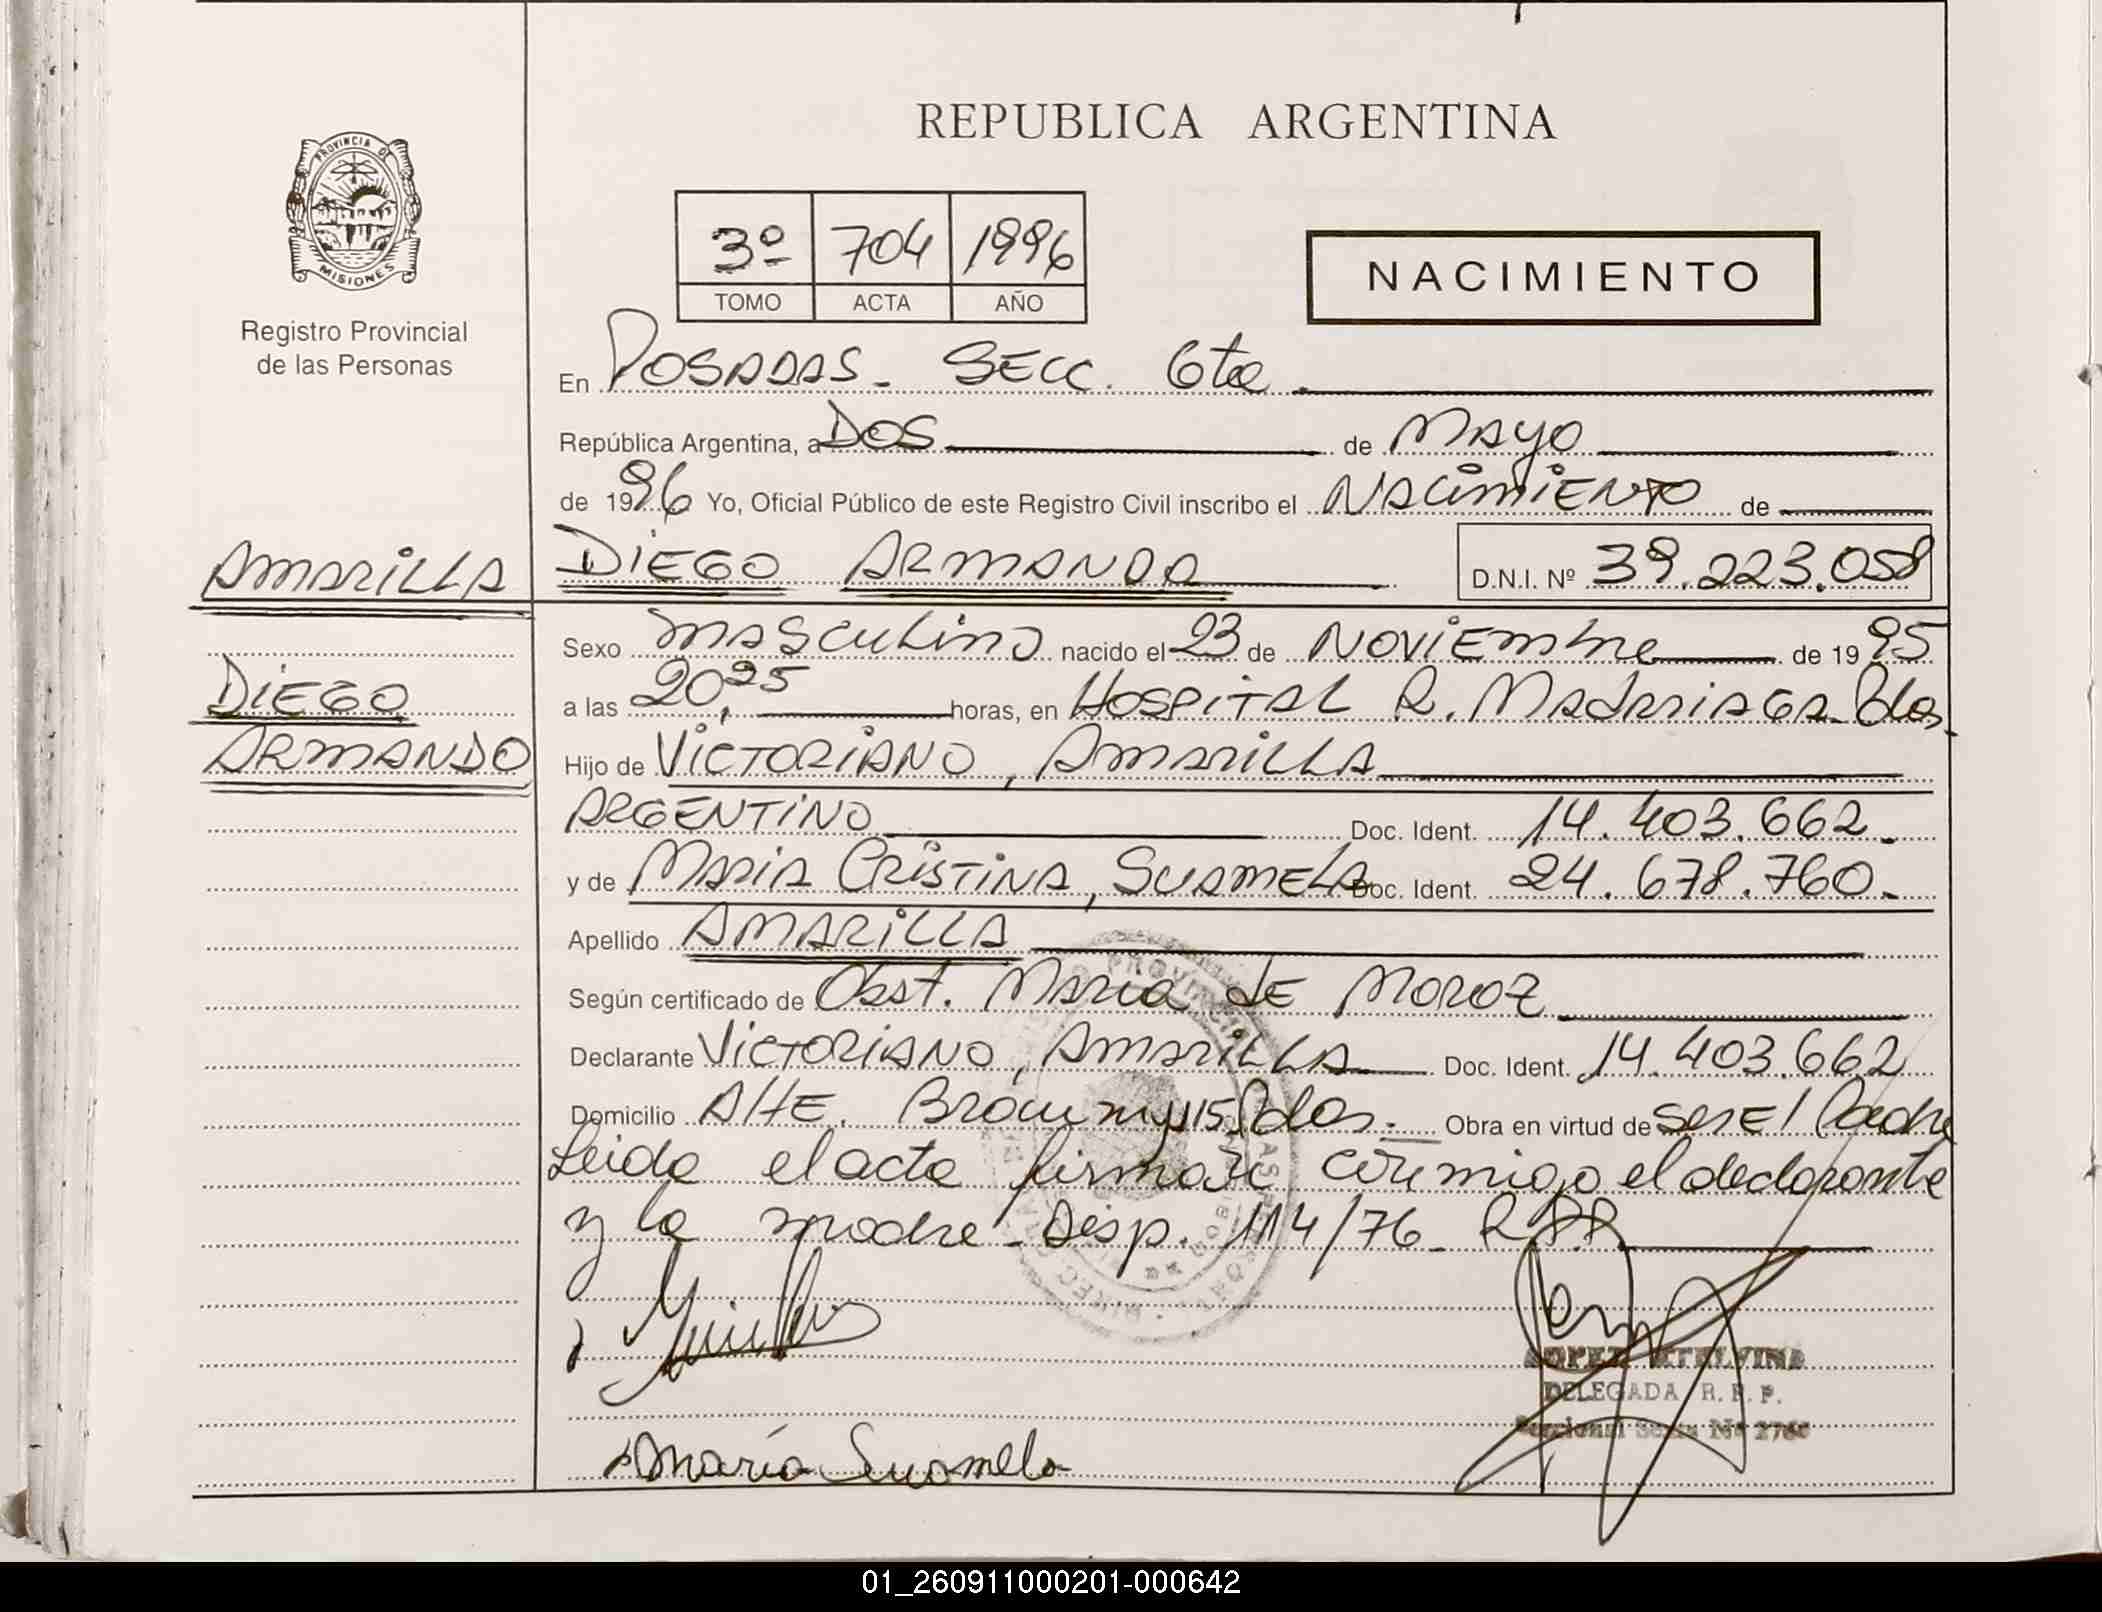 REPUBLICA ARGENTINA
PROVINCIA DE
MISIONES
Registro Provincial
de las Personas
3º 704 1996
TOMO ACTA AÑO
NACIMIENTO
En POSADAS - SECC. 6ta.
República Argentina, a DOS de MAYO
de 1996 Yo, Oficial Público de este Registro Civil inscribo el NACIMIENTO de
AMARILLA
DIEGO ARMANDO D.N.I. Nº 39.223.058
Sexo MASCULINO nacido el 23 de NOVIEMBRE de 1995
DIEGO
a las 20,25 horas, en HOSPITAL R. MADARIAGA - Pdas.
ARMANDO
Hijo de VICTORIANO, AMARILLA
ARGENTINO Doc. Ident. 14.403.662.-
y de MARIA CRISTINA, SUAMELA Doc. Ident. 24.678.760.-
Apellido AMARILLA
Según certificado de Obst. Maria de Moroz
Declarante VICTORIANO, AMARILLA Doc. Ident. 14.403.662
Domicilio Alte. Brown Pdas.- Obra en virtud de ser el Padre
Leida el acta firmará conmigo el declarante
y la madre - Disp. 114/76 - R.P.P.
LOPEZ ETELVINA
DELEGADA R. P. P.
Seccional Sexta Nº
María Suamela
01_260911000201-000642